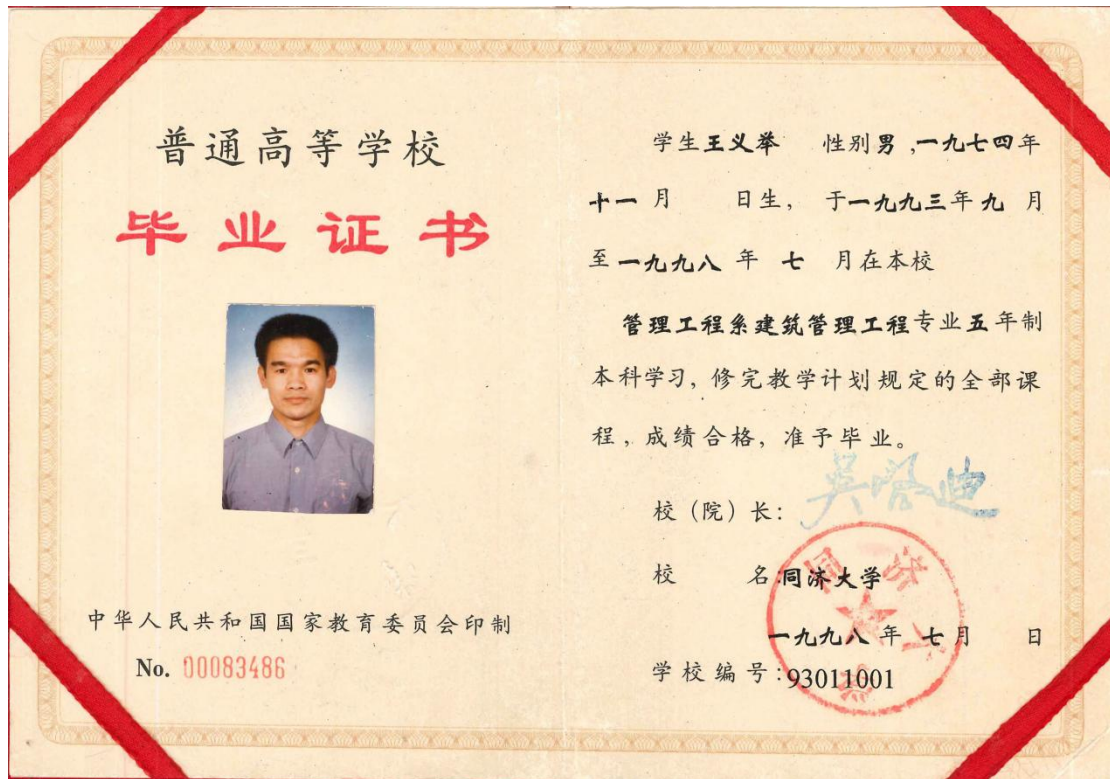 普通高等学校
毕业证书
中华人民共和国国家教育委员会印制
No. 00083486
学生王义举 性别男,一九七四年
十一月 日生, 于一九九三年九月
至一九九八年七月在本校
管理工程系建筑管理工程专业五年制
本科学习, 修完教学计划规定的全部课
程, 成绩合格, 准予毕业。
校(院)长: 吴启迪
校 名:同济大学
一九九八年七月 日
学校编号:93011001
同济大学